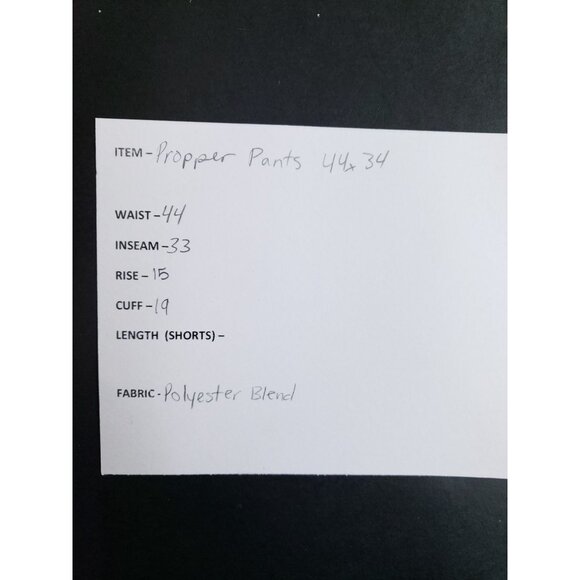 ITEM - Propper Pants 44x34
WAIST - 44
INSEAM - 33
RISE - 15
CUFF - 19
LENGTH (SHORTS) -
FABRIC - Polyester Blend